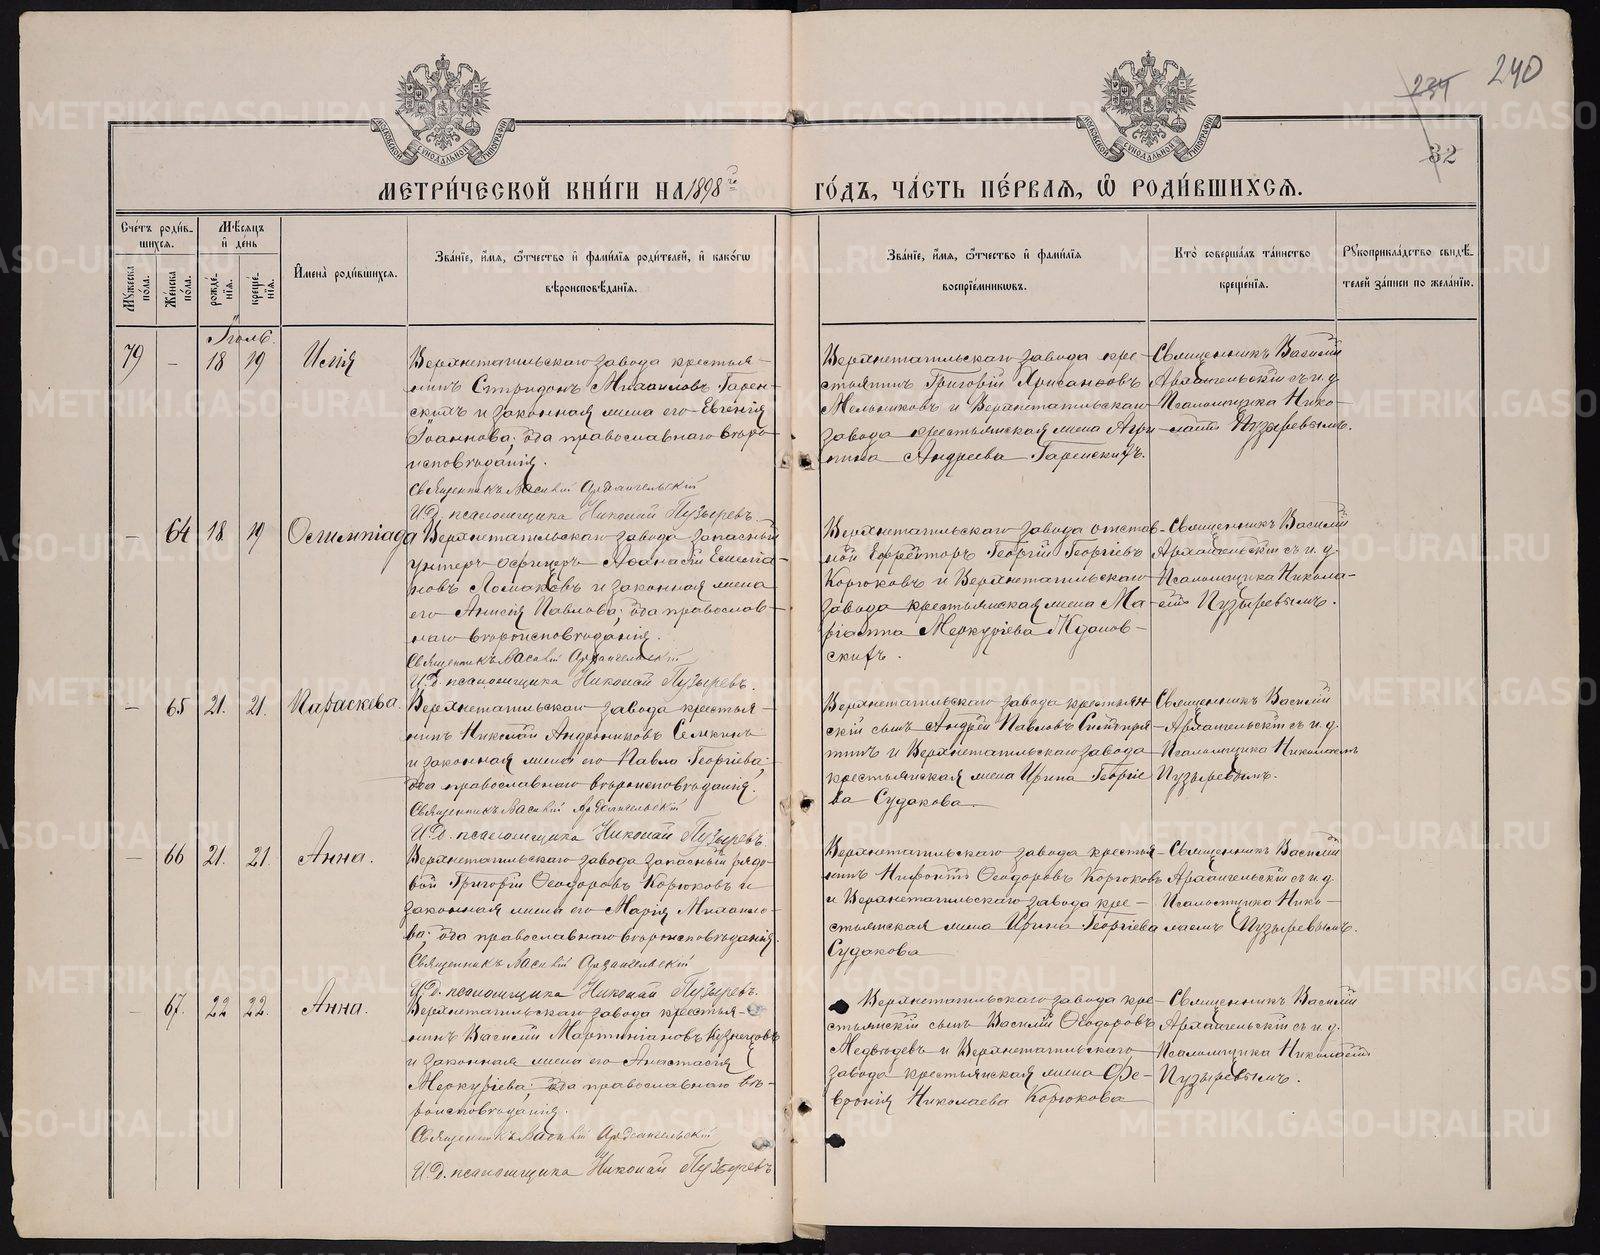 240
234
32
МОСКОВСКОЙ СѴНОДАЛЬНОЙ ТИПОГРАФІИ
МОСКОВСКОЙ СѴНОДАЛЬНОЙ ТИПОГРАФІИ
МЕТРИ́ЧЕСКОЙ КНИ́ГИ НА 1898 й
ГО́ДЪ, ЧА́СТЬ ПЕ́РВАѦ, Ѡ҆ РОДИ́ВШИХСѦ.
Сче́тъ роди́в-
шихсѧ.
Мѣ́сѧцъ
и҆ де́нь
Мꙋ́жеска
по́ла.
Же́нска
по́ла.
рожде́-
нїѧ.
креще́-
нїѧ.
И҆мена̀ роди́вшихсѧ.
Зва́нїе, и҆́мѧ, ѻ҆́тчество и҆ фамн́лїѧ роди́телей, и҆ како́гѡ
вѣроисповѣ́данїѧ.
Зва́нїе, и҆́мѧ, ѻ҆́тчество и҆ фами́лїѧ
воспрїе́мникѡвъ.
Кто̀ соверша́лъ та́инство
креще́нїѧ.
Рꙋкоприкла́дство свидѣ́-
телей за́писи по жела́нїю.
Іюль.
79 - 18 19 Илія
Верхнетагильскаго завода крестья-
нинъ Спиридонъ Михаиловъ Гарен-
скихъ и законная жена его Евгенія
Іоаннова; оба православнаго вѣро-
исповѣданія.
Священникъ Василій Архангельскій
И.д. псаломщика Николай Пузыревъ.
Верхнетагильскаго завода кре-
стьянинъ Григорій Хрисанѳовъ
Мельниковъ и Верхнетагильскаго
завода крестьянская жена Агри-
пина Андреева Гаренскихъ.
Священникъ Василій
Архангельскій съ и.д.
Псаломщика Нико-
лаемъ Пузыревымъ.
- 64 18 19 Олимпіада
Верхнетагильскаго завода запасный
унтеръ-офицеръ Аѳанасій Емелiа-
новъ Ломаевъ и законная жена
его Анисія Павлова; оба православ-
наго вѣроисповѣданія.
Священникъ Василій Архангельскій
И.д. псаломщика Николай Пузыревъ.
Верхнетагильскаго завода отстав-
ной Ефрейторъ Георгій Георгіевъ
Корюковъ и Верхнетагильскаго
завода крестьянская жена Ма-
ріанна Меркуріева Жданов-
скихъ.
Священникъ Василій
Архангельскій съ и.д.
Псаломщика Никола-
емъ Пузыревымъ.
- 65 21. 21. Параскева.
Верхнетагильскаго завода крестья-
нинъ Николай Андрониковъ Семкинъ
и законная жена его Павла Георгіева;
оба православнаго вѣроисповѣданія.
Священникъ Василій Архангельскій
И.д. псаломщика Николай Пузыревъ.
Верхнетагильскаго завода крестьян
скій сынъ Андрей Павловъ
и Верхнетагильскаго завода
крестьянская жена Ирина Георгіе
ва Судакова.
Священникъ Василій
Архангельскій съ и.д.
Псаломщика Николаемъ
Пузыревымъ.
- 66 21. 21. Анна.
Верхнетагильскаго завода запасный рядо-
вой Григорій Ѳеодоровъ Корюковъ и
законная жена его Марія Михаило-
ва; оба православнаго вѣроисповѣданія.
Священникъ Василій Архангельскій
И.д. псаломщика Николай Пузыревъ.
Верхнетагильскаго завода крестья-
нинъ Нифонтъ Ѳеодоровъ Корюковъ
и Верхнетагильскаго завода кре-
стьянская жена Ирина Георгіева
Судакова
Священникъ Василій
Архангельскій съ и.д.
Псаломщика Нико-
лаемъ Пузыревымъ.
- 67. 22 22. Анна.
Верхнетагильскаго завода крестья-
нинъ Василій Мартиніановъ Кузнецовъ
и законная жена его Анастасія
Меркуріева; оба православнаго вѣ-
роисповѣданія.
Священникъ Василій Архангельскій
И.д. псаломщика Николай Пузыревъ
Верхнетагильскаго завода кре-
стьянскій сынъ Василій Ѳеодоровъ
Медвѣдевъ и Верхнетагильскаго
завода крестьянская жена Фе-
вронія Николаева Корюкова
Священникъ Василій
Архангельскій съ и.д.
Псаломщика Николаемъ
Пузыревымъ.
METRIKI.GASO-URAL.RU